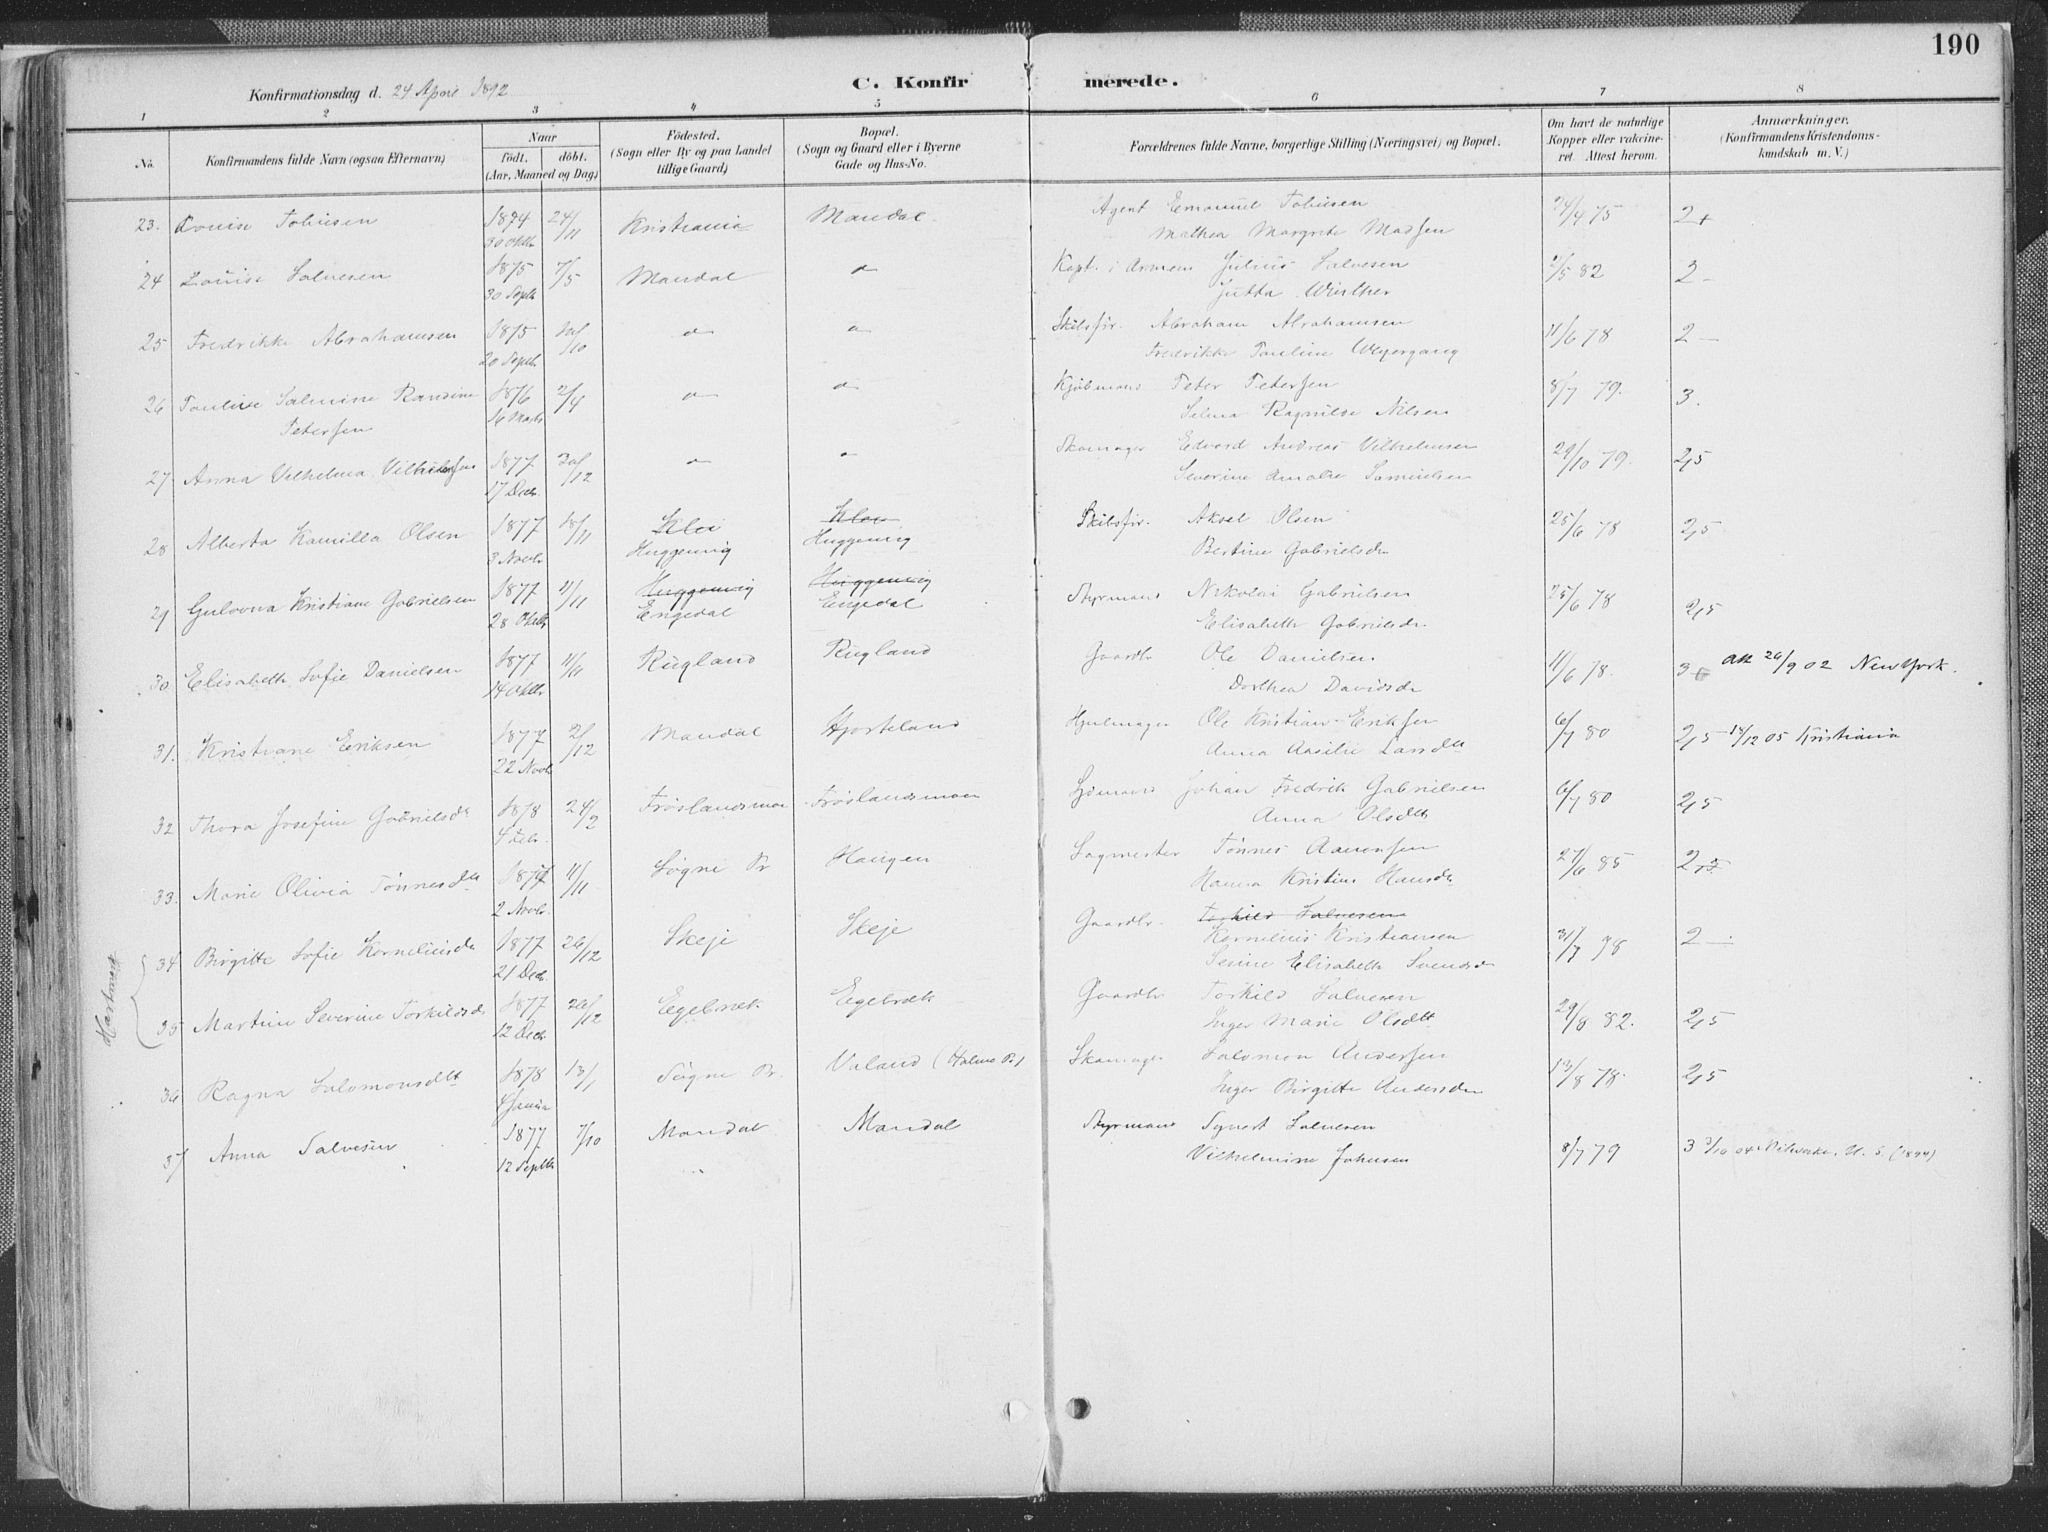 190
C. Konfirmerede.
Konfirmationsdag d. 24 April 1892
1 2 3 4 5 6 7 8
No. Konfirmandens fulde Navn (ogsaa Efternavn) Naar födt. döbt. (Aar, Maaned og Dag) Födested. (Sogn eller By og paa Landet tillige Gaard) Bopæl. (Sogn og Gaard eller i Byerne Gade og Hus-No. Forældrenes fulde Navne, borgerlige Stilling (Næringsvei) og Bopæl. Om havt de naturlige Kopper eller vakcineret. Attest herom. Anmærkninger. (Konfirmandens Kristendomskundskab m. V.)
23. Louise Tobiisen 1874 30 Oktbr 24/11 Kristiania Mandal Agent Emanuel Tobiisen 24/4 75 2+
Mathea Margrete Madsen
24 Louise Salvesen 1875 30 Septb 7/5 Mandal Kapt. i Armeen Julius Salvesen 2/5 82 2 –
Jutta Winther
25 Fredrikke Abrahamsen 1875 20 Septbr /10 Skibsfør. Abraham Abrahamsen 11/6 78 2 –
Fredrikke Pauline Weyergang
26 Pauline Salmine Randine 1876 16 Marts 2/4 Kjøbmand Peter Petersen 8/7 79. 3.
Petersen Selma Ragnilde Nilsen
27 Anna Vilhelma Vilhelmsen 1877 17 Decb. 30/12 Skomager Edvard Andreas Vilhelmsen 29/10 79. 2,5
Severine Amalie Samuelsen
28 Alberta Kamilla Olsen 1877 3 Novbr 18/11 Klev Klev Skibsfør. Aksel Olsen 25/6 78 2,5
Huggenvig Huggenvig Bertine Gabrielsdr
29 Gulovna Kristiane Gabrielsen 1877 28 Oktbr 11/11 Huggenvig Huggenvig Styrmand Nikolai Gabrielsen 25/6 78 2,5
Engedal Engedal Elisabeth Gabrielsdr
30 Elisabeth Sofie Danielsen 1877 14 Oktbr 11/11 Rugland Rugland Gaardbr Ole Danielsen 11/6 78. 3 att 26/9 02 New York.
Dorthea Davidsdr
31. Kristiane Eriksen 1877 22 Novbr 2/12 Mandal Hjorteland Hjulmager Ole Kristian Eriksen 6/7 80 2,5 /12 05 Kristiania
Anna
32 Thora Josefine Gabrielsdr 1878 4 Febr. 24/2 Frøslandsmoen Frøslandsmoen Sjømand Johan Fredrik Gabrielsen 6/7 80 2,5
Anna Olsdtt
33. Marie Olivia Tønnesdtt 2 Novbr. 11/11 Søgne Pr Haugen Sagmester Tønnes Aanensen 27/6 85 2
Hanna Kristine Hansdtr
Gaardbr. Torkild Salvesen
34 Birgitte Sofie Korneliusdr 1877 21 Decbr 26/12 Skeje Skeje Kornelius Kristiansen 31/7 78 2 –
Sesine Elisabeth Svendsdr
35 Martine Severine Torkildsdr 1877 12 Decbr 26/12 Egebræk Egebræk Gaardbr Torkild Salvesen 29/8 82. 2,5
Inger Marie Olsdtt
36 Ragna Salomonsdtt 1878 13/1 Søgne Pr. Valand (Holme Pr) Skomager Salomon Andersen 13/8 78. 2,5
Inger Birgitte Andersdr
37 Anna Salvesen 1877 12 Septbr 7/10 Mandal Mandal Styrmand Salvesen
Vilhelmine Johnsen 8/7 79 3 3/10 04 Milwaukee, U. S.